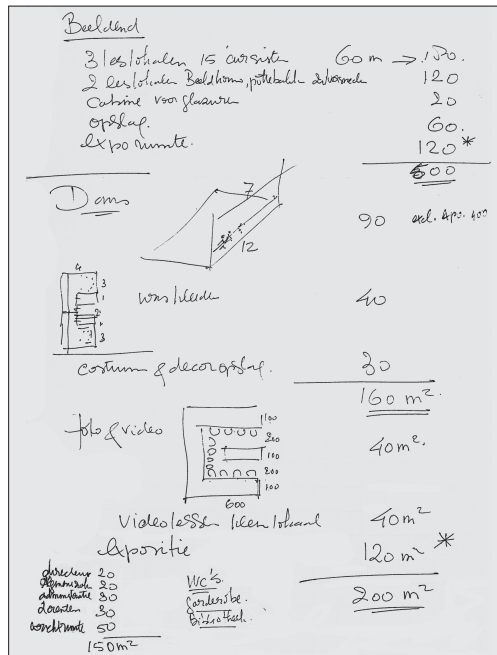 Beeldend
3 leslokalen 15 cursisten 60 m → 180.
2 leslokalen Beeldhouw, pottebakk
120
Cabine voor glasuren 20
opslag. 60.
expo ruimte. 120 *
500
Dans
7
12
90 excl. expo. 400
4
3
1
2
1
3
was/kleden 40
costuum & decor opslag. 30
160 m².
foto & video
100
200
100
200
100
600
40 m².
Videolessen klein lokaal 40 m²
Expositie 120 m² *
200 m²
directeur 20
20
administratie 30
docenten 30
50
150 m²
WC's.
Garderobe.
Bibliotheek.